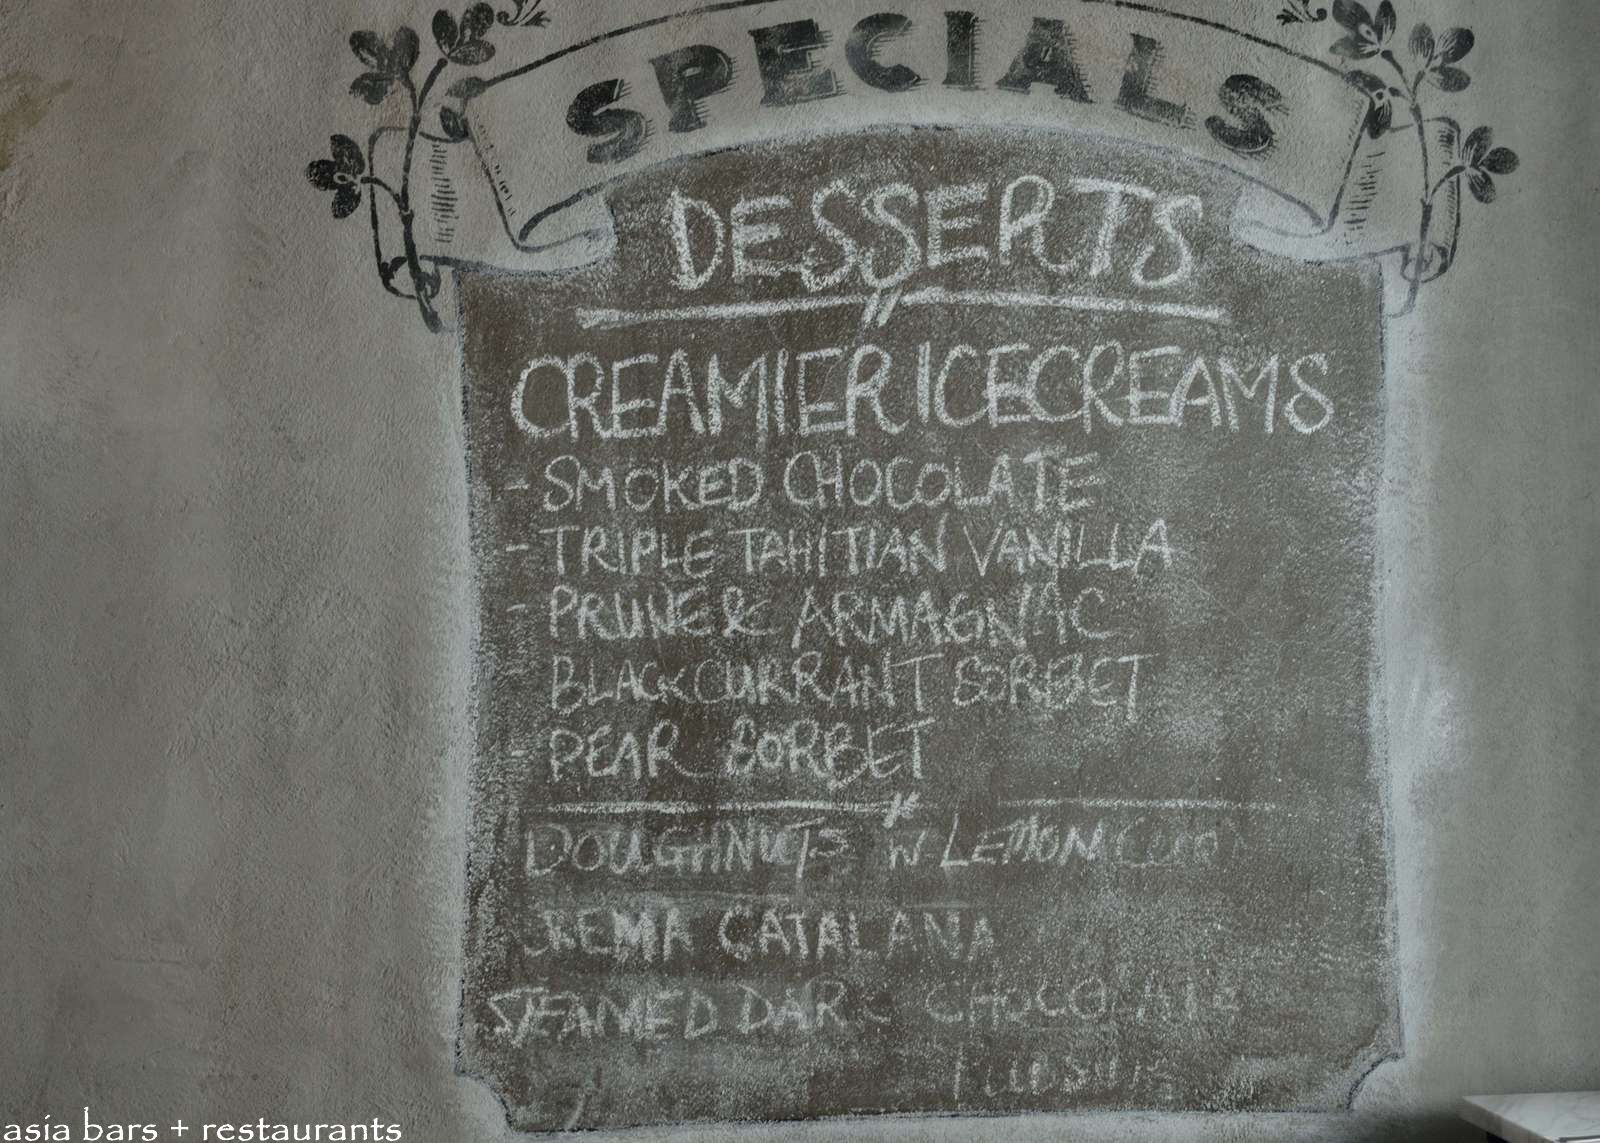 SPECIALS
DESSERTS
CREAMIER ICECREAMS
- SMOKED CHOCOLATE
- TRIPLE TAHITIAN VANILLA
- PRUNE & ARMAGNAC
- BLACKCURRANT SORBET
- PEAR SORBET
DOUGHNUTS W LEMON
CREMA CATALANA
STEAMED DARK CHOCOLATE
asia bars + restaurants